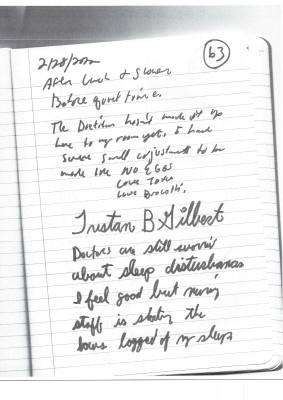 63
2/28/2022
After lunch & Shower
Before quiet time.
The Dietitian hasn't made it up
here to my room yet. I have
some small adjustments to be
made like NO EGGS
Love Tofu
Love Brocolli.
Tristan B Gilbert
Doctors are still worri
about sleep disturbances
I feel good but nursing
staff is stating the
hours logged of my sleep